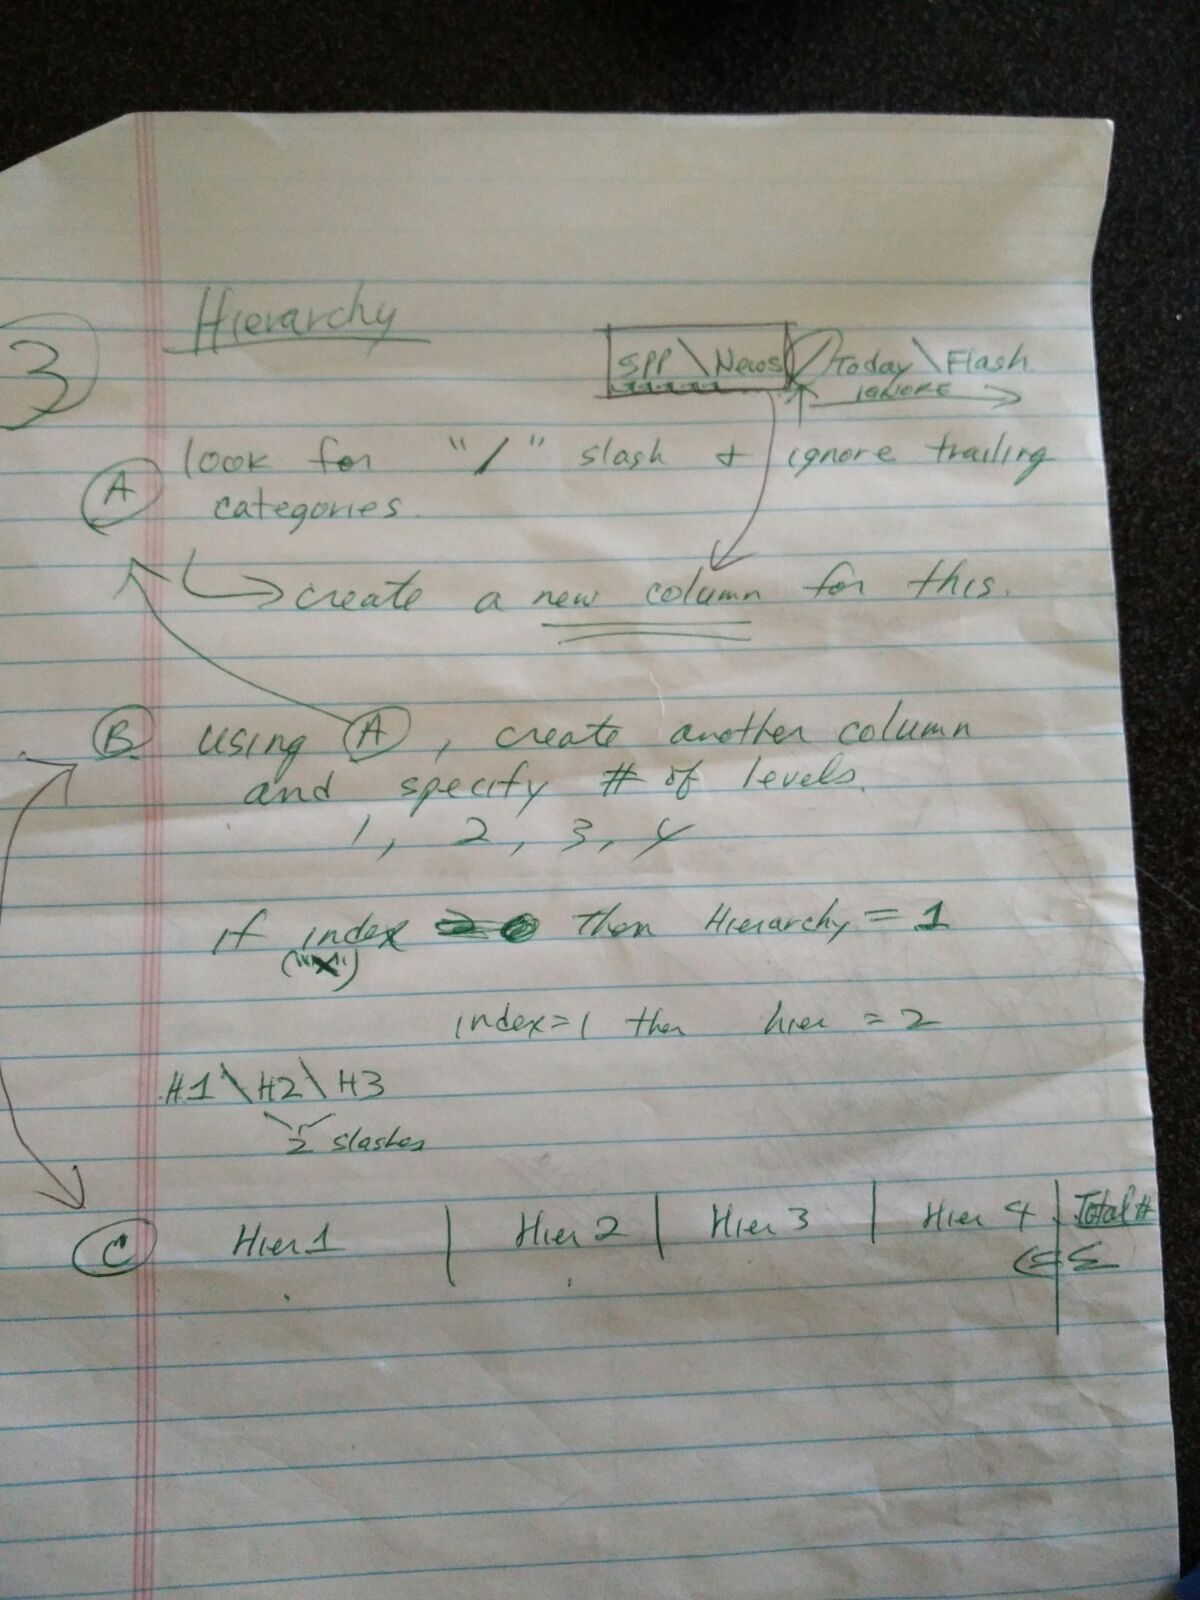 3
Hierarchy
SPP \ News / Today \ Flash
IGNORE
A look for "/" slash & ignore trailing
categories.
create a new column for this.
B using A, create another column
and specify # of levels.
1, 2, 3, 4
if index then Hierarchy = 1
index = 1 then hier = 2
H1 \ H2 \ H3
2 slashes
C Hier 1 | Hier 2 | Hier 3 | Hier 4 | Total #
Σ